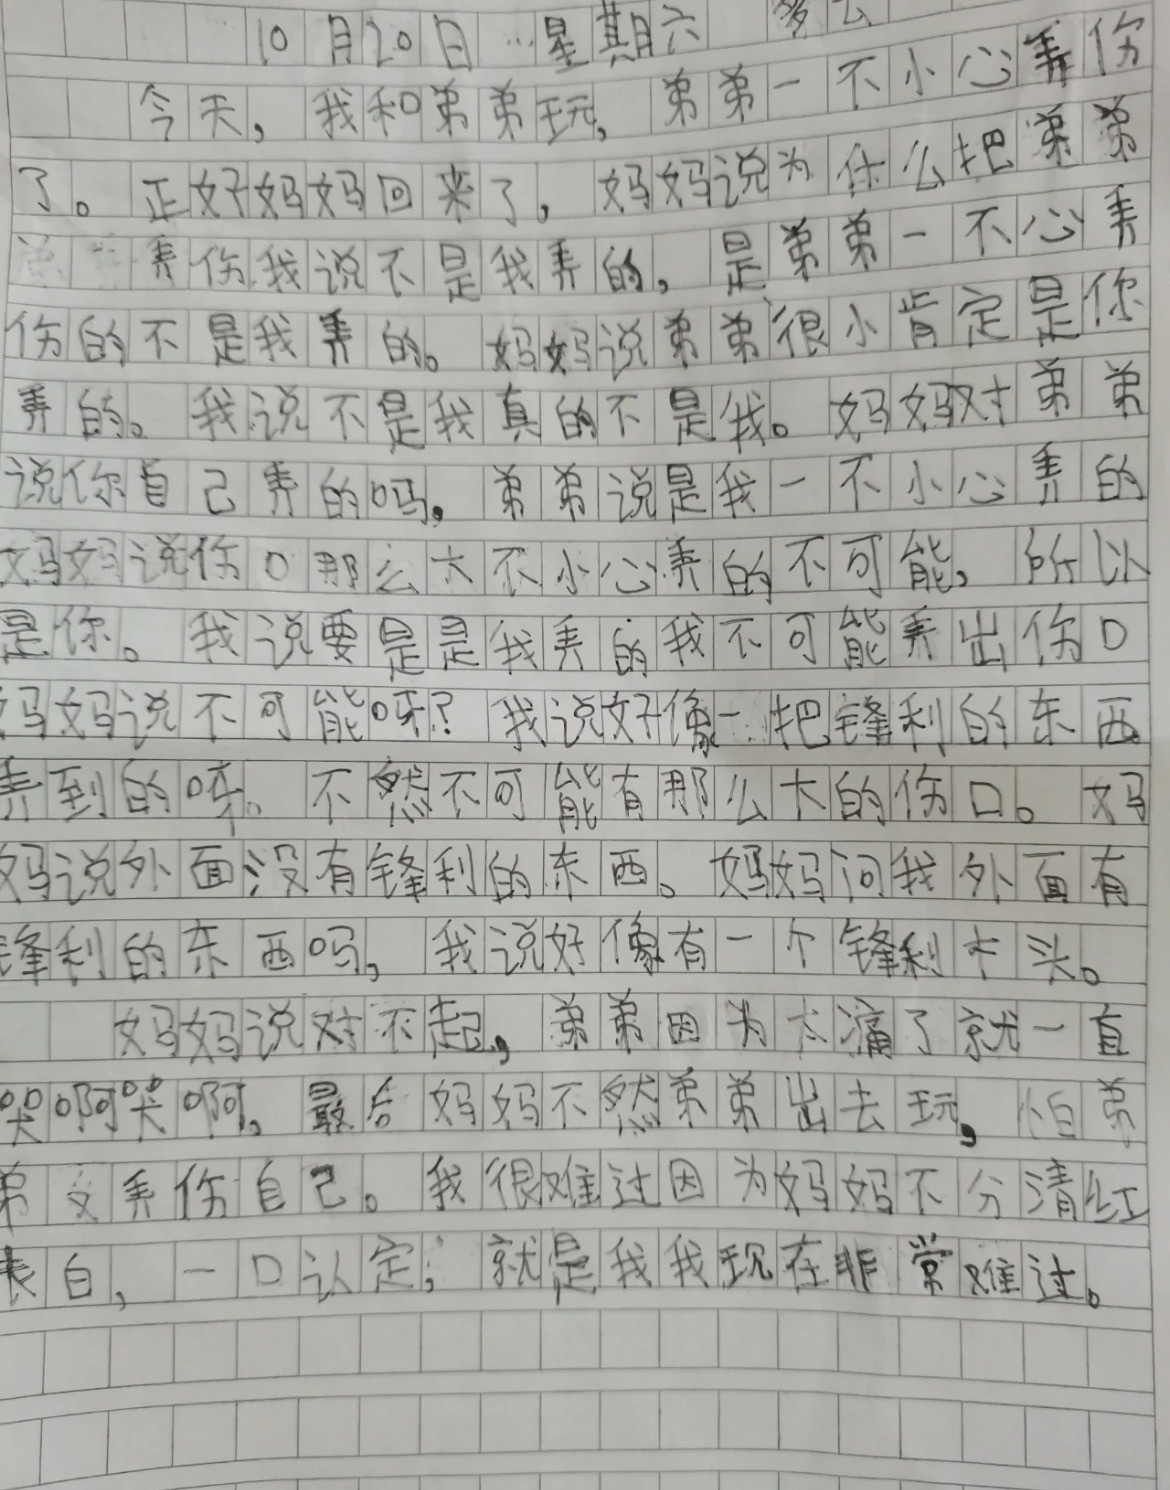 10月20日 星期六 多云
今天，我和弟弟玩，弟弟一不小心弄伤
了。正好妈妈回来了，妈妈说为什么把弟弟
弄伤我说不是我弄的，是弟弟一不心弄
伤的不是我弄的。妈妈说弟弟很小肯定是你
弄的。我说不是我真的不是我。妈妈对弟弟
说你自己弄的吗，弟弟说是我一不小心弄的
妈妈说伤口那么大不小心弄的不可能，所以
是你。我说要是是我弄的我不可能弄出伤口
妈妈说不可能呀？我说好像一把锋利的东西
弄到的呀。不然不可能有那么大的伤口。妈
妈说外面没有锋利的东西。妈妈问我外面有
锋利的东西吗，我说好像有一个锋利木头。
妈妈说对不起，弟弟因为太痛了就一直
哭啊哭啊，最后妈妈不然弟弟出去玩，怕弟
弟又弄伤自己。我很难过因为妈妈不分清红
白，一口认定，就是我我现在非常难过。